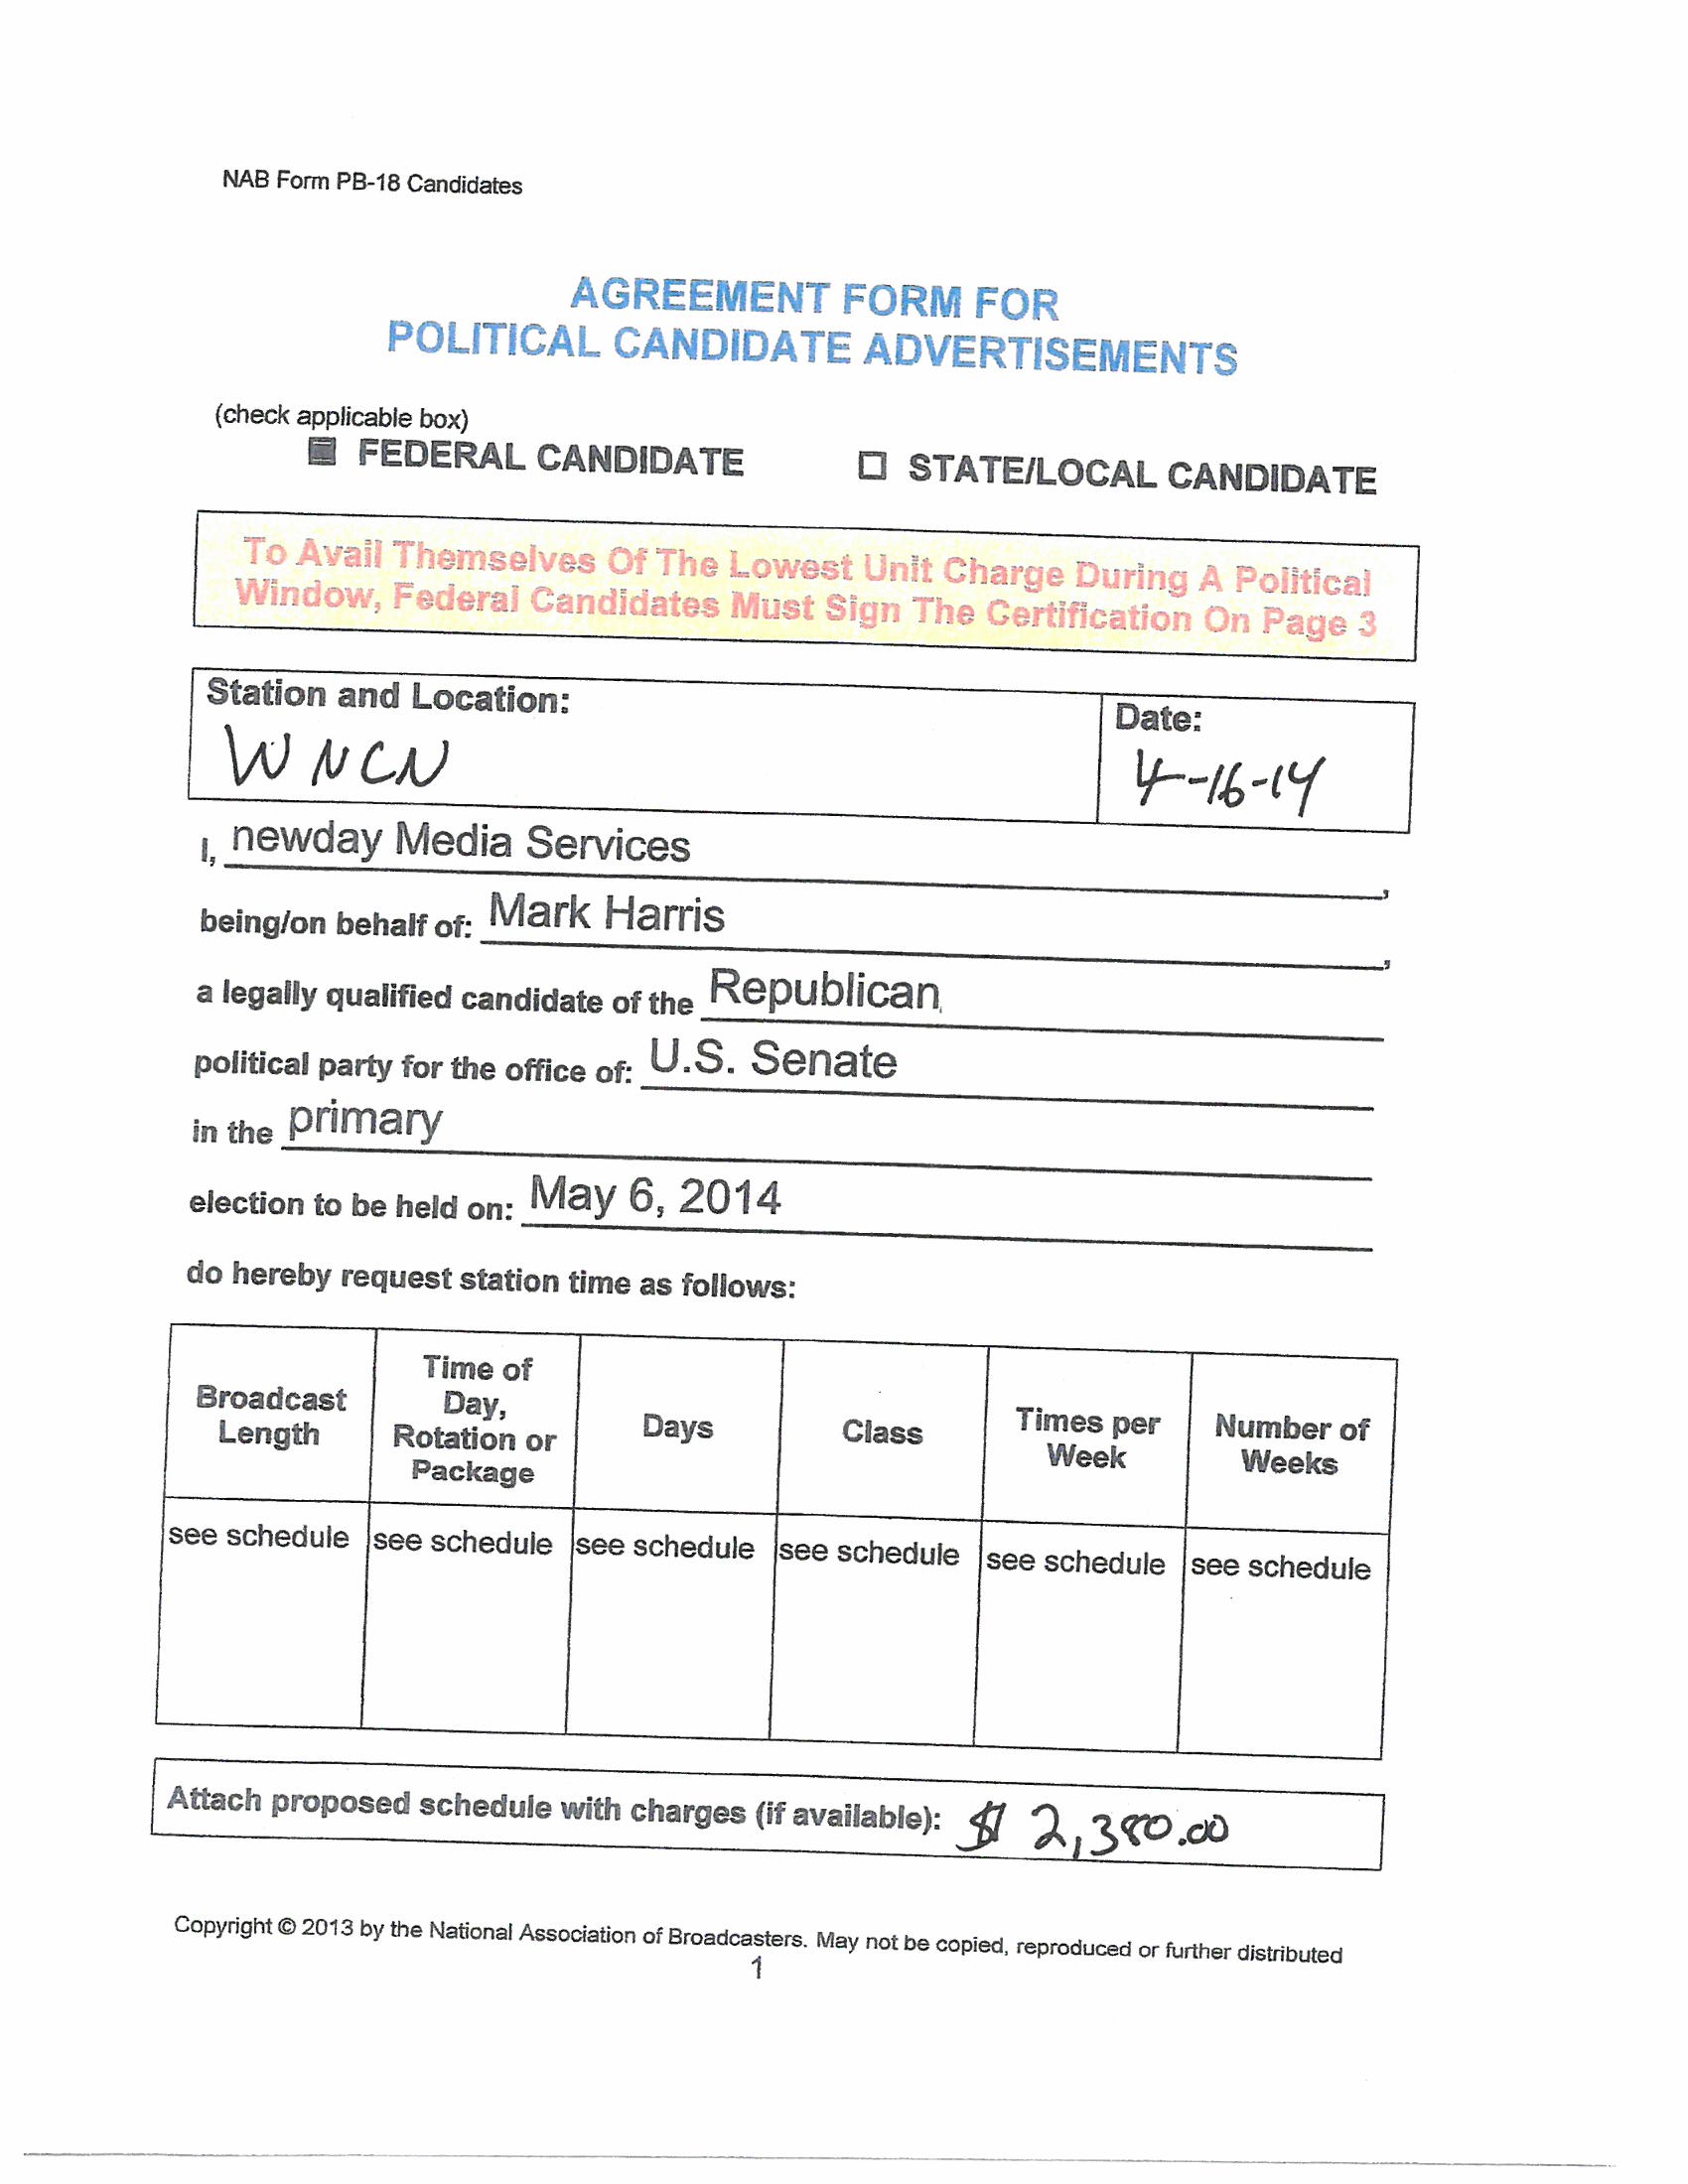 NAB Form PB-18 Candidates
AGREEMENT FORM FOR
POLITICAL CANDIDATE ADVERTISEMENTS
(check applicable box)
FEDERAL CANDIDATE STATE/LOCAL CANDIDATE
To Avail Themselves Of The Lowest Unit Charge During A Political
Window, Federal Candidates Must Sign The Certification On Page 3
Station and Location: Date:
WNCN 4-16-14
I, newday Media Services,
being/on behalf of: Mark Harris,
a legally qualified candidate of the Republican
political party for the office of: U.S. Senate
in the primary
election to be held on: May 6, 2014
do hereby request station time as follows:
Broadcast Length Time of Day, Rotation or Package Days Class Times per Week Number of Weeks
see schedule see schedule see schedule see schedule see schedule see schedule
Attach proposed schedule with charges (if available): $ 2,380.00
Copyright © 2013 by the National Association of Broadcasters. May not be copied, reproduced or further distributed
1